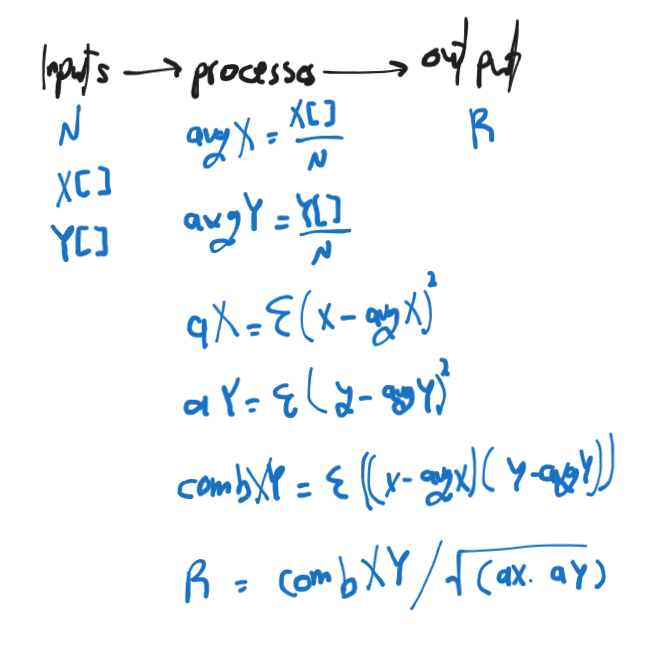 Inputs → processes → output
N avgX = X[] / N R
X[]
Y[] avgY = Y[] / N
aX = Σ(x - avgX)²
aY = Σ(y - avgY)²
combXY = Σ((x - avgX)(y - avgY))
R = combXY / √(ax. aY)